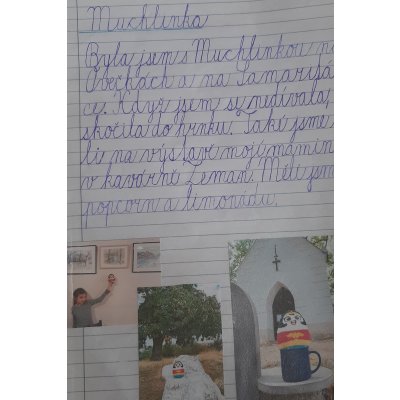 Muchlinka
Byla jsem s Muchlinkou na
Ovečkách a na Tamariš
ce. Když jsem se nedívala,
skočila do hrnku. Také jsme
li na výstavě mojí mamin
v kavárně Zeman. Měli jsm
popcorn a limonádu.